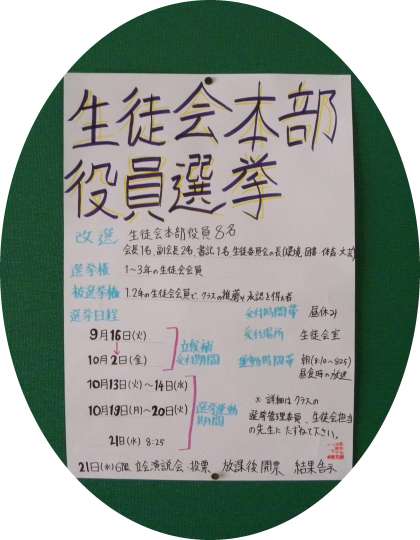 生徒会本部
役員選挙
改選 生徒会本部役員8名
会長1名、副会長2名、書記1名、生徒委員会の長(環境、図書、体育、文芸)
選挙権 1〜3年の生徒会会員
被選挙権 1.2年の生徒会会員で、クラスの推薦や承認を得た者
選挙日程
9月16日(火)
↓
10月2日(金)
立候補
受付期間
10月13日(火)〜14日(水)
10月19日(月)〜20日(火)
21日(水) 8:25
選挙運動
期間
受付時間帯 昼休み
受付場所 生徒会室
運動時間帯 朝(8:10〜8:25)
昼食時の放送
※ 詳細はクラスの
選挙管理委員、生徒会担当
の先生にたずねて下さい。
21日(水)6限 立会演説会・投票 放課後 開票 結果告示